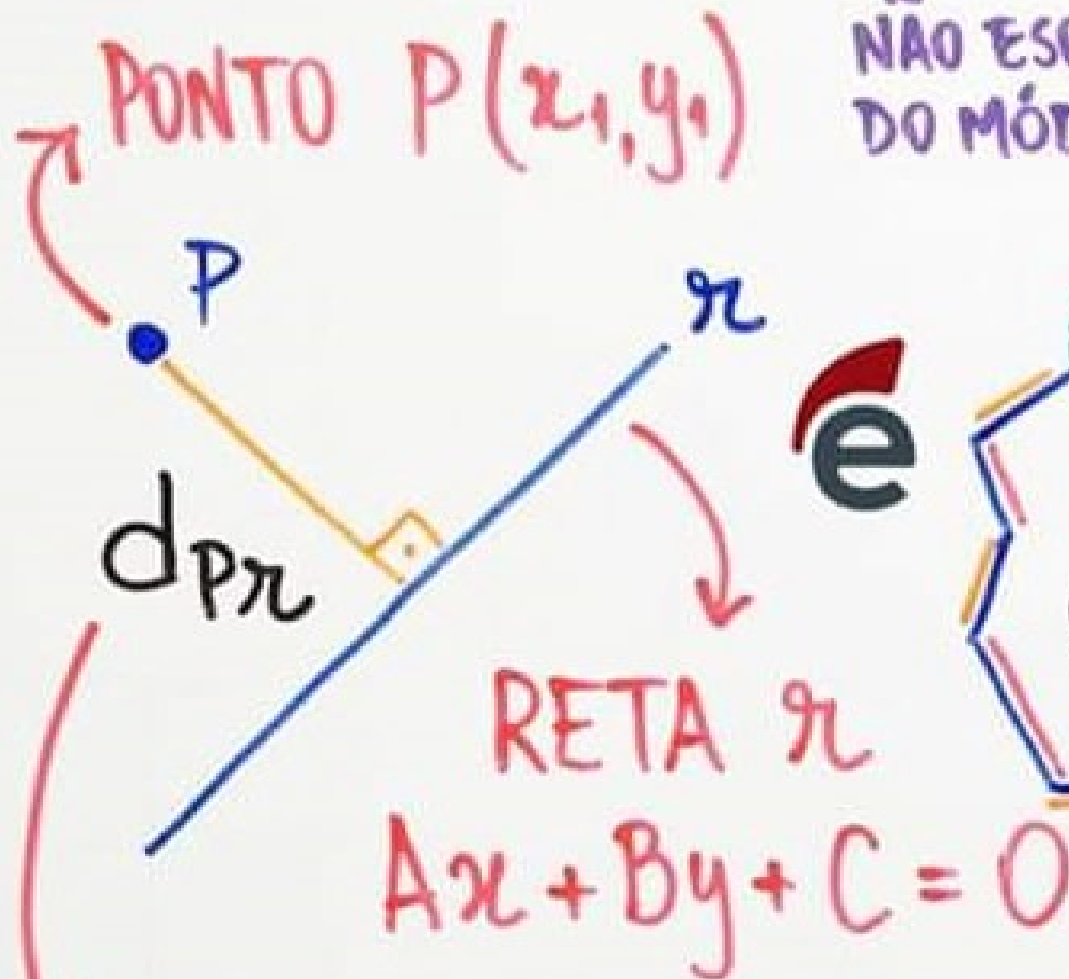 PONTO P(x₁,y₁)
NÃO
DO
P
r
e
dPr
RETA r
Ax + By + C = 0